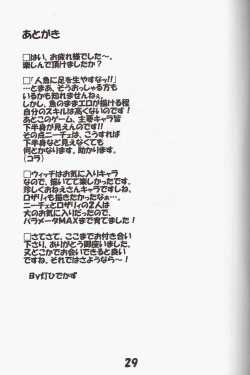 あとがき
□はい、お疲れ様でした〜。
楽しんで頂けましたか?
□「人魚に足を生やすなッ!!」
…とまあ、そうおっしゃる方も
いるかも知れませんねぇ。
しかし、魚のままエロが描ける程
自分のスキルは高くないのです!
あとこのゲーム、主要キャラ皆
下半身が見えんのです!!
その点ニーチェは、こうすれば
下半身など見えなくても
何とかなります。助かります。
(コラ)
□ウィッチはお気に入りキャラ
なので、描いてて楽しかったです。
珍しくおねえさんキャラですしね。
ロザリィも描きたかったなぁ…。
ニーチェとロザリィの2人は
大のお気に入りだったので、
パラメータMAXまで育てました!
□さてさて、ここまでお付き合い
下さり、ありがとう御座いました。
又どこかでお会いできると良い
ですね。それではさようなら〜!
By灯ひでかず
29